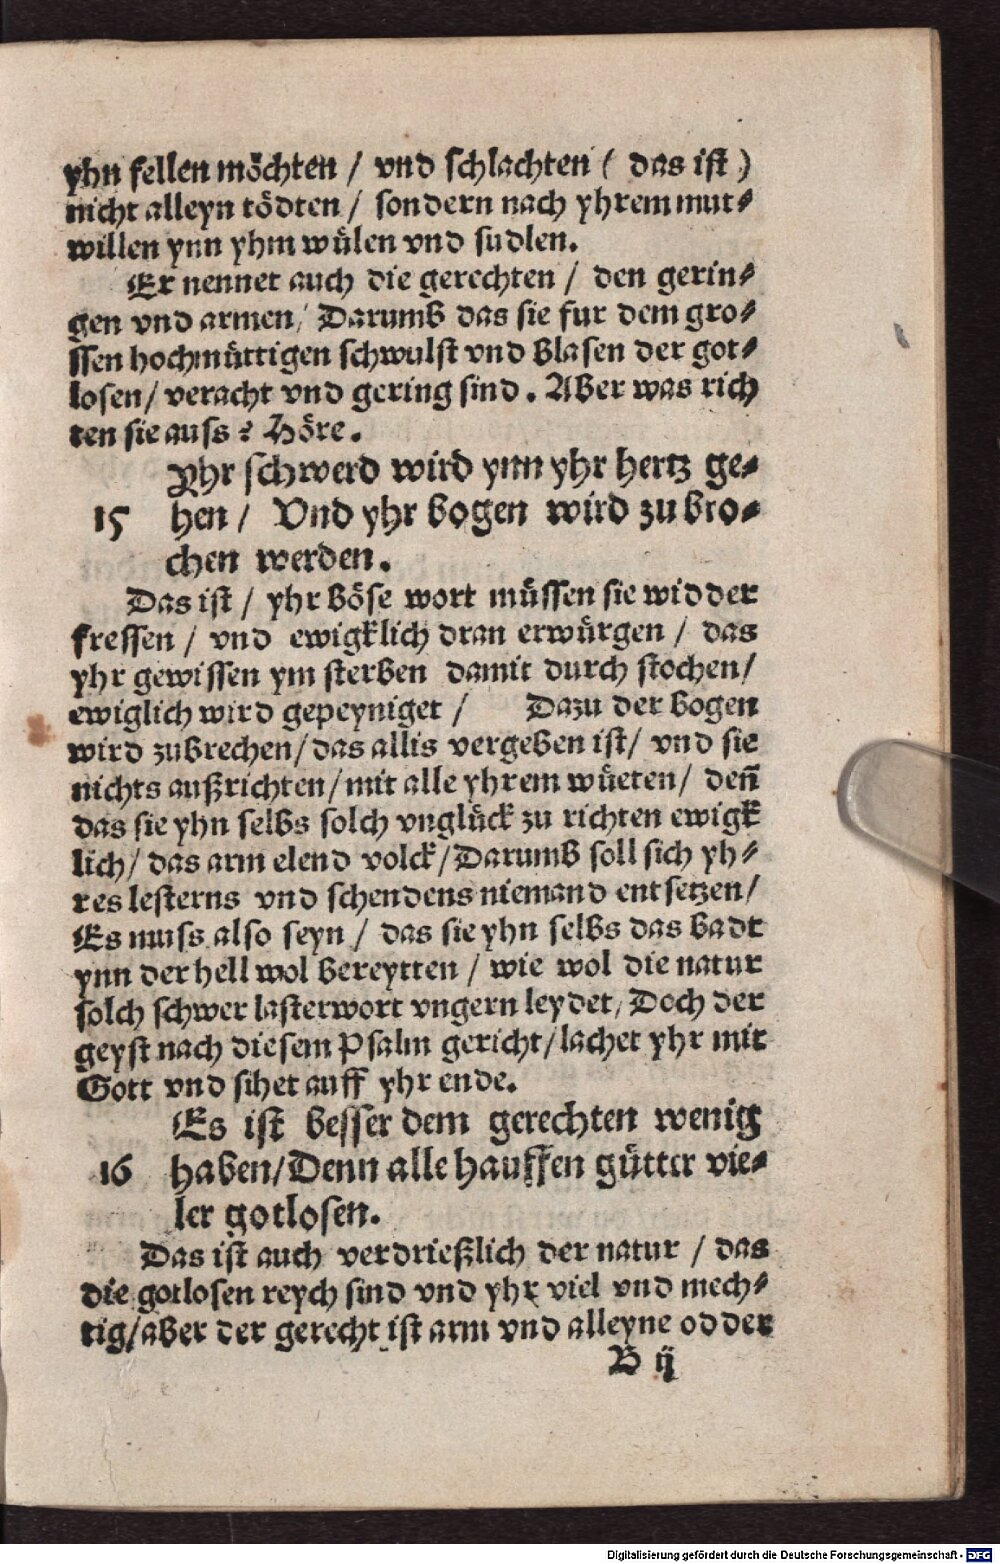 yhn fellen möchten / vnd schlachten ( das ist )
nicht alleyn tödten / sondern nach yhrem mut⸗
willen ynn yhm wülen vnd sudlen.
Er nennet auch die gerechten / den gerin⸗
gen vnd armen / Darumb das sie fur dem gro⸗
ssen hochmüttigen schwulst vnd blasen der got⸗
losen / veracht vnd gering sind. Aber was rich
ten sie auss ? Höre.
Yhr schwerd wird ynn yhr hertz ge⸗
15 hen / Vnd yhr bogen wird zu bro⸗
chen werden.
Das ist / yhr böse wort müssen sie widder
fressen / vnd ewigklich dran erwürgen / das
yhr gewissen ym sterben damit durch stochen /
ewiglich wird gepeyniget / Dazu der bogen
wird zubrechen / das allis vergeben ist / vnd sie
nichts außrichten / mit alle yhrem wüeten / deñ
das sie yhn selbs solch vnglück zu richten ewigk
lich / das arm elend volck / Darumb soll sich yh⸗
res lesterns vnd schendens niemand entsetzen /
Es muss also seyn / das sie yhn selbs das badt
ynn der hell wol bereytten / wie wol die natur
solch schwer lasterwort vngern leydet / Doch der
geyst nach diesem Psalm gericht / lachet yhr mit
Gott vnd sihet auff yhr ende.
Es ist besser dem gerechten wenig
16 haben / Denn alle hauffen gütter vie⸗
ler gotlosen.
Das ist auch verdrießlich der natur / das
die gotlosen reych sind vnd yhr viel vnd mech⸗
tig / aber der gerecht ist arm vnd alleyne odder
B ij
Digitalisierung gefördert durch die Deutsche Forschungsgemeinschaft - DFG